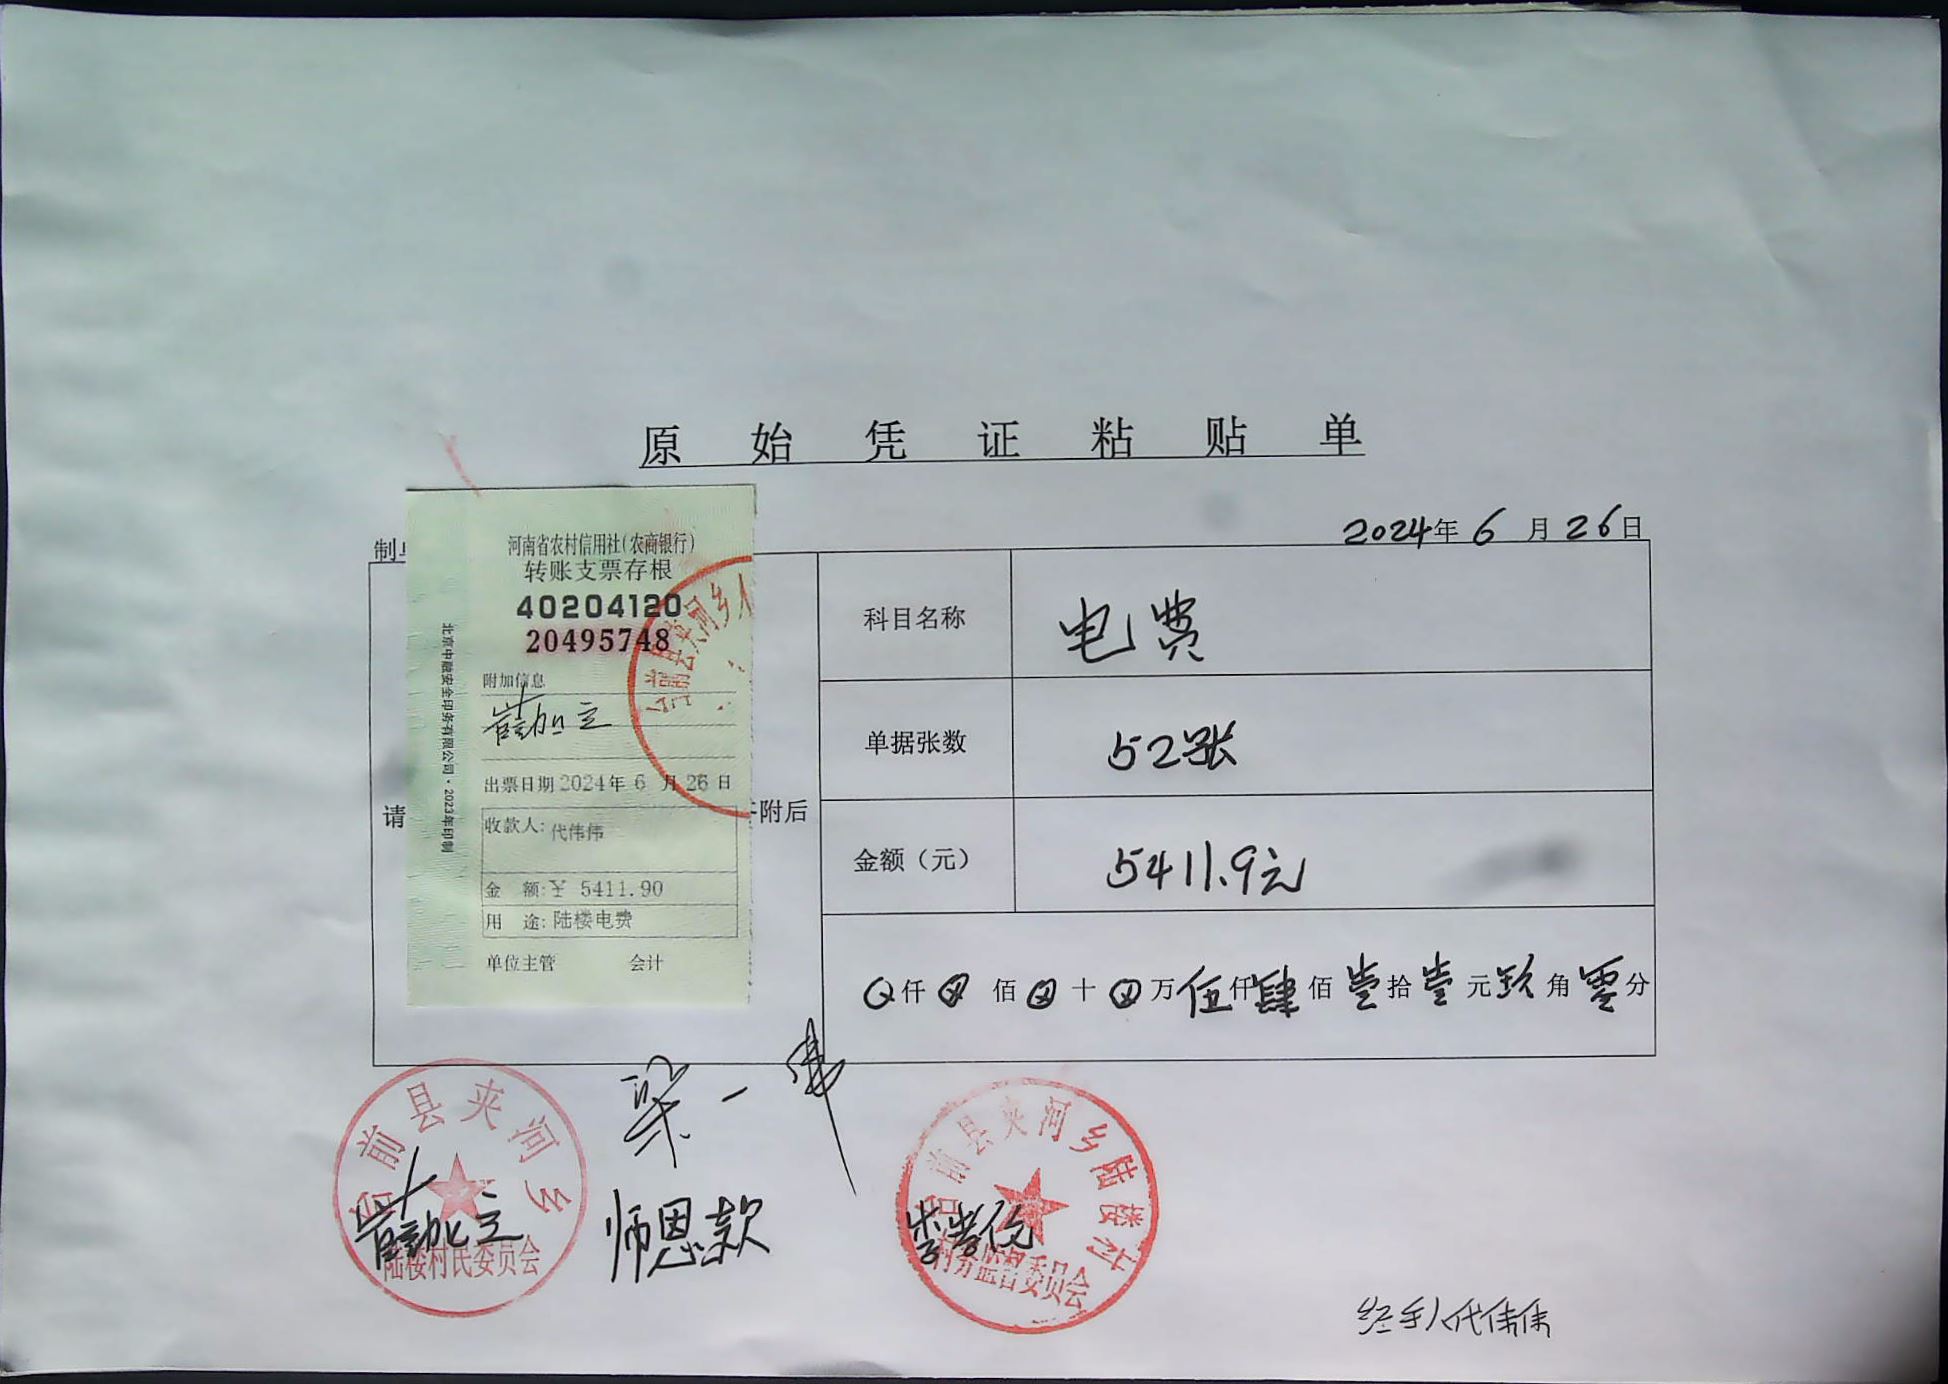 原始凭证粘贴单
2024年6月26日
制单
河南省农村信用社(农商银行)
转账支票存根
40204120
20495748
附加信息
出票日期2024年6月26日
收款人:代伟伟
金额:¥ 5411.90
用途:陆楼电费
单位主管 会计
北京中融安全印务有限公司·2023年印制
台前县夹河乡人
请
附后
科目名称 电费
单据张数 52张
金额（元） 5411.9元
0仟0佰0十0万伍仟肆佰壹拾壹元玖角零分
台前县夹河乡
陆楼村民委员会
师恩款
台前县夹河乡陆楼村
村务监督委员会
经手人代伟伟